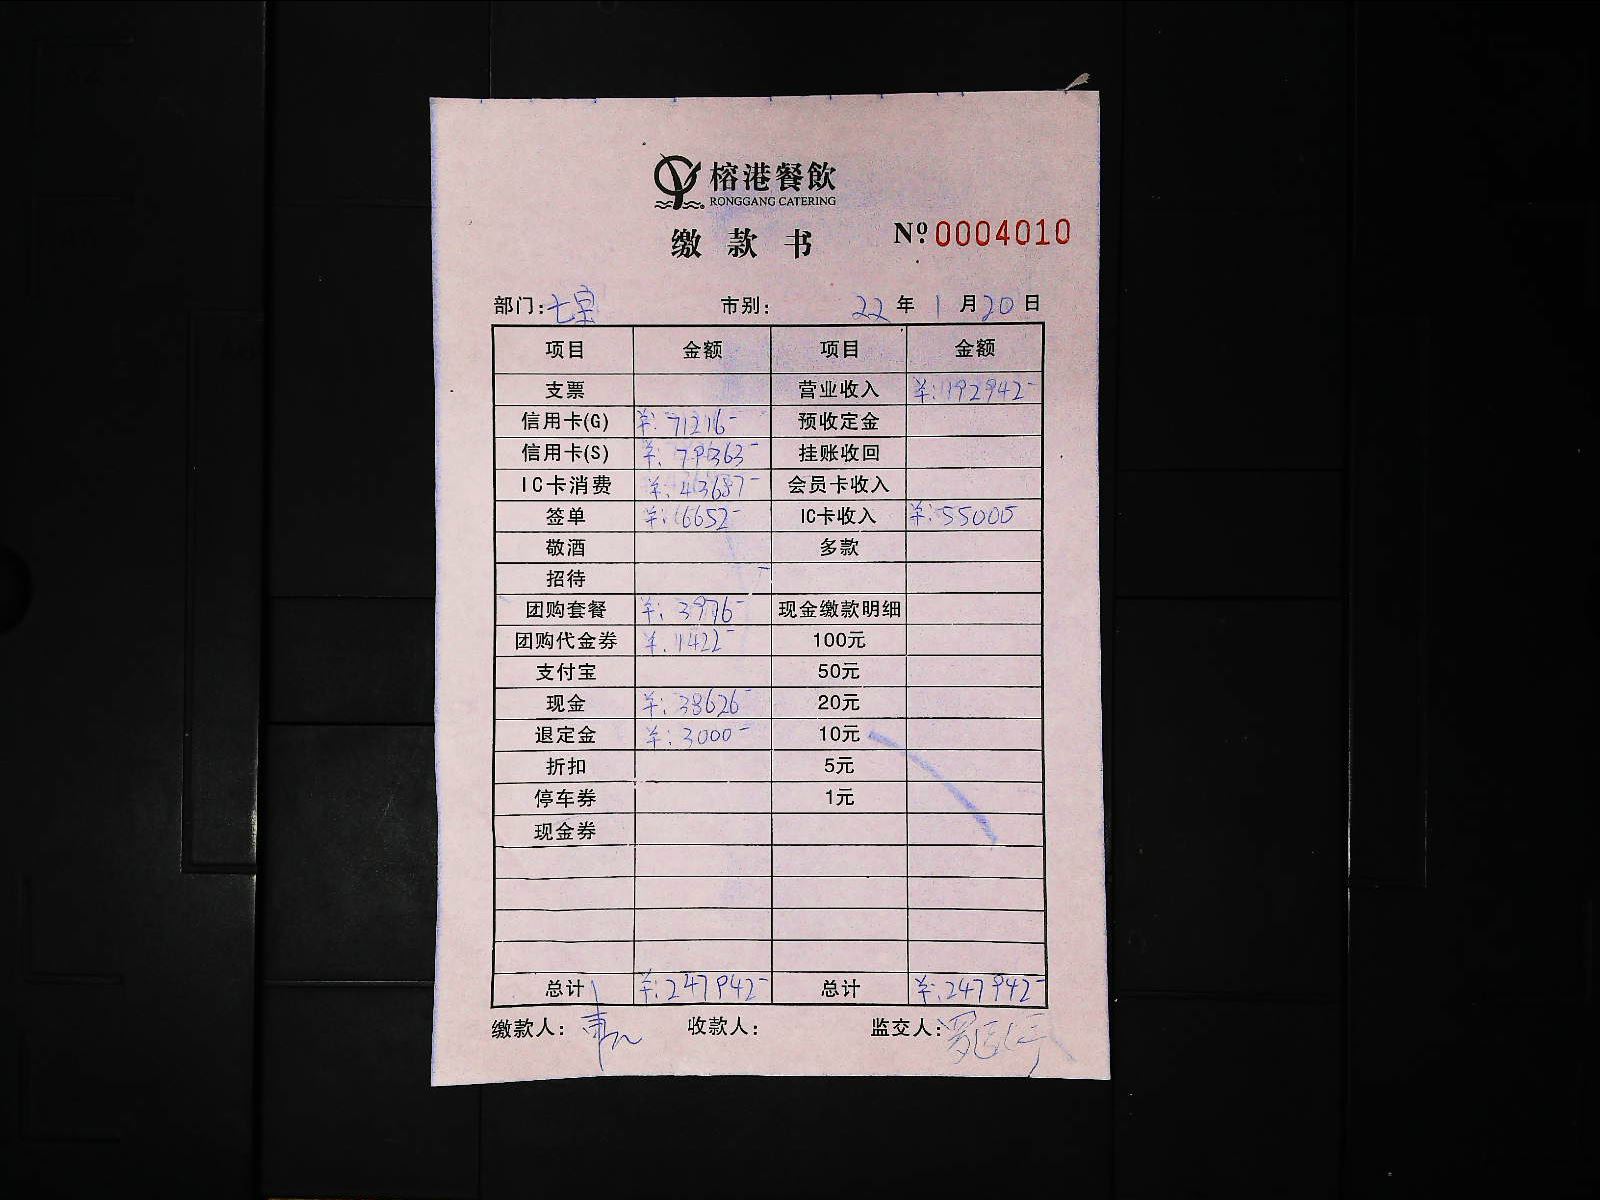 榕港餐飲
RONGGANG CATERING
缴款书 Nº 0004010
部门:七宝 市别: 22年1月20日
项目 金额 项目 金额
支票 营业收入 ¥:192942-
信用卡(G) ¥:71216- 预收定金
信用卡(S) ¥:79363- 挂账收回
IC卡消费 ¥:43687- 会员卡收入
签单 ¥:6652- IC卡收入 ¥:55000
敬酒 多款
招待
团购套餐 ¥:3976- 现金缴款明细
团购代金券 ¥:1422- 100元
支付宝 50元
现金 ¥:38626- 20元
退定金 ¥:3000- 10元
折扣 5元
停车券 1元
现金券
总计 ¥:247942- 总计 ¥:247942-
缴款人: 收款人: 监交人: